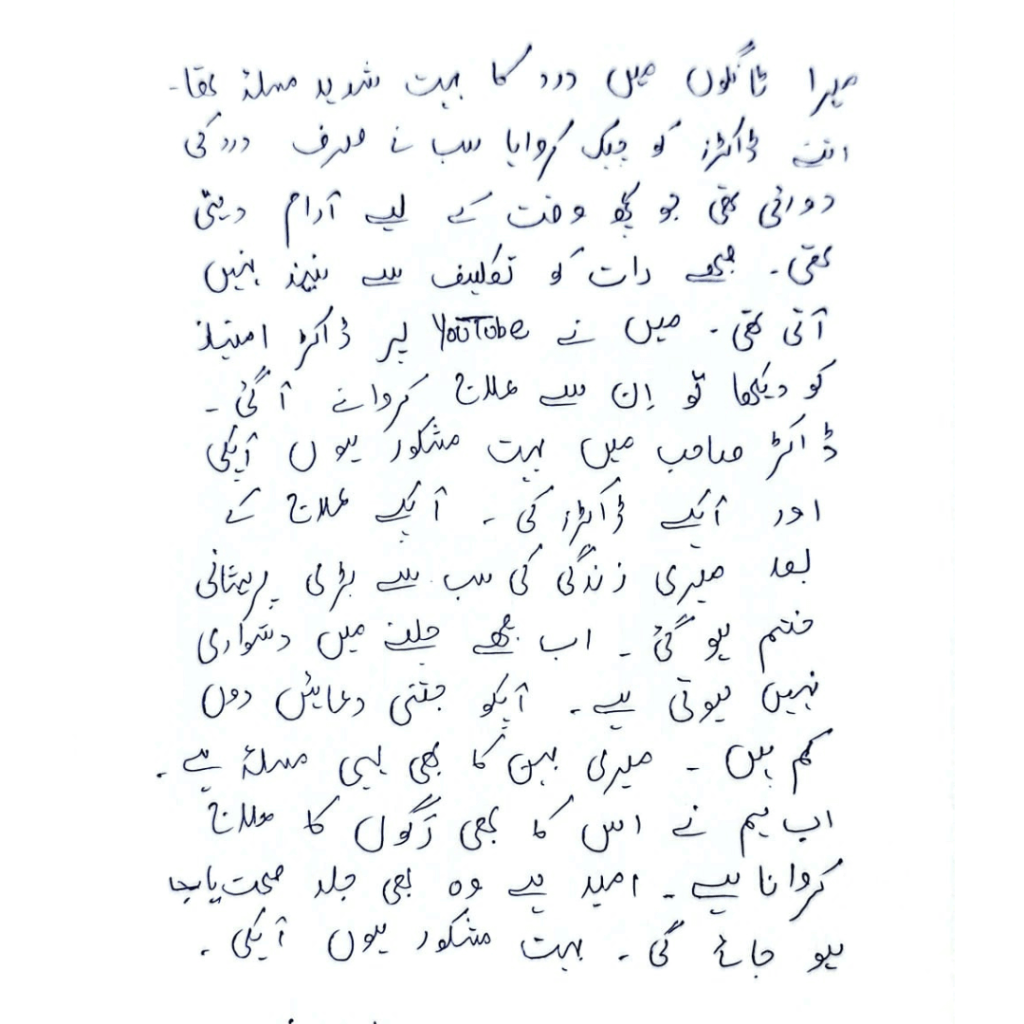 میرا ٹانگوں میں درد کا بہت شدید مسلۂ تھا۔
اتنے ڈاکٹرز کو چیک کروایا سب نے صرف درد کی
دوائی تھی جو کچھ وقت کے لیے آرام دیتی
تھی۔ مجھے رات کو تکلیف سے نیند نہیں
آتی تھی۔ میں نے YouTube پر ڈاکٹر امتیاز
کو دیکھا تو اِن سے علاج کروانے آ گئی۔
ڈاکٹر صاحب میں بہت مشکور ہوں آپکی
اور آپکے ڈاکٹرز کی۔ آپکے علاج کے
بعد میری زندگی کی سب سے بڑی پریشانی
ختم ہو گئی۔ اب مجھے چلنے میں دشواری
نہیں ہوتی ہے۔ آپکو جتنی دعایئں دوں
کم ہیں۔ میری بہن کا بھی یہی مسلۂ ہے۔
اب ہم نے اس کا بھی رَگوں کا علاج
کروانا ہے۔ امید ہے وہ بھی جلد صحت یاب
ہو جائے گی۔ بہت مشکور ہوں آپکی۔